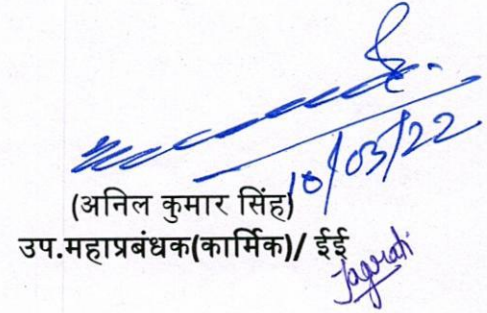 10/03/22
(अनिल कुमार सिंह)
उप.महाप्रबंधक(कार्मिक)/ ईई
Jagrati